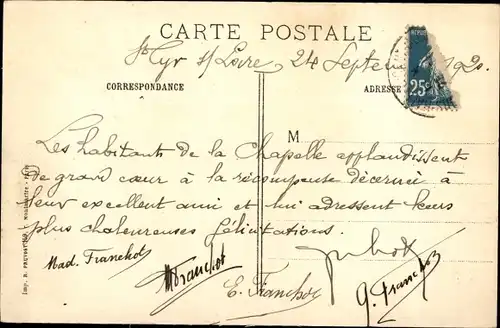 CARTE POSTALE
St Cyr s/ Loire 24 Septembre 1920
CORRESPONDANCE
ADRESSE
25
M
Les habitants de la Chapelle applaudissent
de grand cœur à la récompense décernée à
leur excellent ami et lui adressent leurs
plus chaleureuses félicitations.
Mad. Franchot
Franchot
E. Franchot
G. Franchot